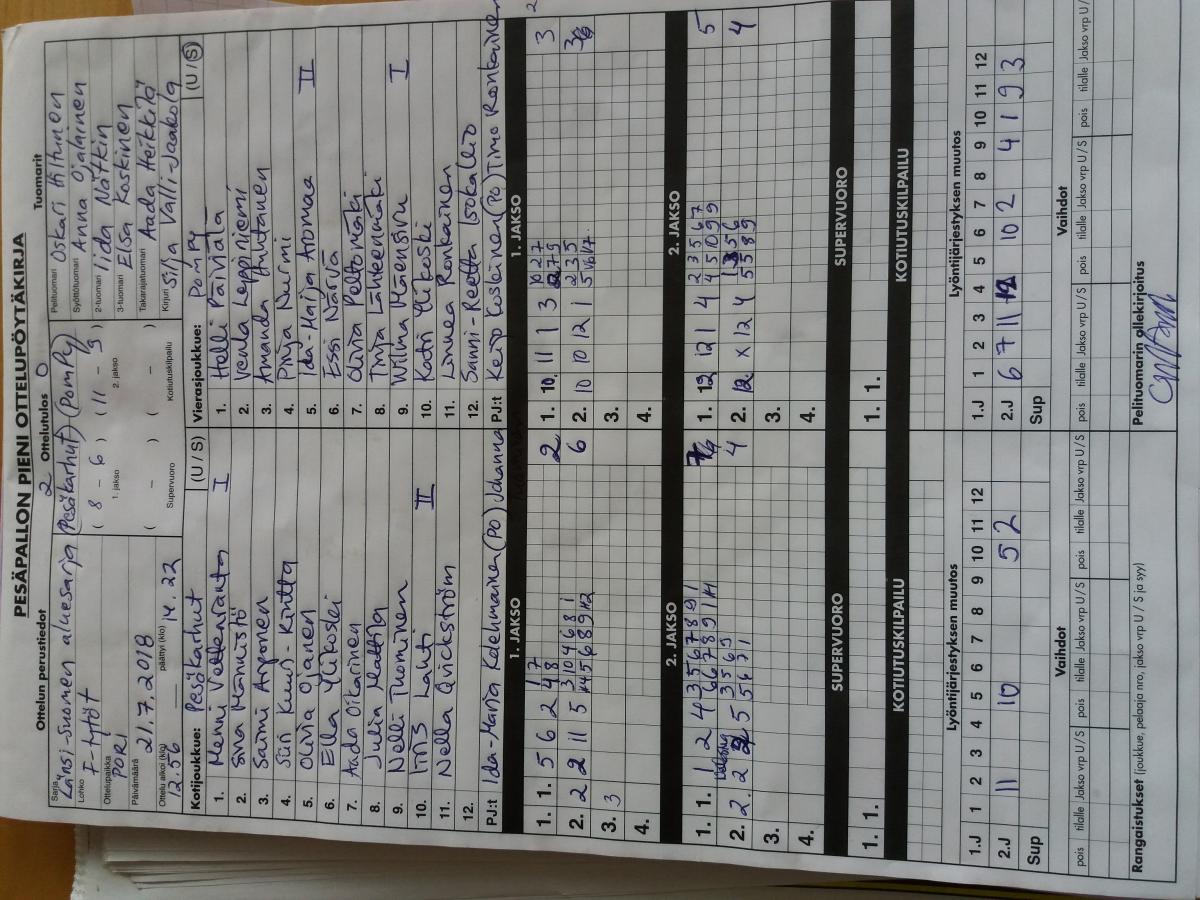 PESÄPALLON PIENI OTTELUPÖYTÄKIRJA
Ottelun perustiedot
Sarja Länsi-Suomen aluesarja
Lohko F-tytöt
Ottelupaikka PORI
Päivämäärä 21.7.2018
Ottelu alkoi (klo) 12.56 päättyi (klo) 14.22
2 Ottelutulos 0
(Pesäkarhut) (PomPy)
( 8 - 6 ) ( 11 - 9 )
1. jakso 2. jakso
( - ) ( - )
Supervuoro Kotiutuskilpailu
Tuomarit
Pelituomari Oskari Hiltunen
Syöttötuomari Anna Ojalainen
2-tuomari Iida Nätkin
3-tuomari Elsa Koskinen
Takarajatuomari Aada Heikkilä
Kirjuri Silja Valli-Jaakola
Kotijoukkue: Pesäkarhut (U / S)
1. Menni Vettenranta I
2. Sina Männistö
3. Saimi Arponen
4. Siiri Kuusi-Kintta
5. Olivia Ojanen
6. Ella Ylikoski
7. Aada Oikarinen
8. Julia Mattila
9. Nelli Tuominen
10. Iiris Lahti II
11. Nella Qvickström
12.
PJ:t Ida-Maria Kolehmainen (PO) Johanna
Vierasjoukkue: PomPy (U / S)
1. Helli Päiviäla
2. Venla Leppiniemi
3. Amanda Huhtanen
4. Pinja Nurmi
5. Ida-Maija Aromaa II
6. Essi Närvä
7. Olivia Peltomäki
8. Tinja Lähteenmäki
9. Wilma Mäensivu I
10. Katri Ylikoski
11. Linnea Ronkainen
12. Sanni-Reetta Isokallio
PJ:t Keijo Koskinen (PO) Timo Ronkainen
1. JAKSO 1. JAKSO
1. 1. 5 6 2 1 7 2
4 8
2. 2 2 11 5 3 10 4 6 8 1 6
3. 3
4.
1. 10. 11 1 3 10 2 7 3
2. 10 10 12 1 2 3 5
3.
4.
2. JAKSO 2. JAKSO
1. 1. 1 2 4 3 5 6 7 8 9 1 7
6 6 7 8 9 1
2. 2. 2 5 3 5 6 4
5 6 7 1
3.
4.
1. 12 12 1 4 2 3 5 6 7 5
4 5 10 9 9
2. 12 x 12 4 5 6 4
5 5 8 9
3.
4.
SUPERVUORO SUPERVUORO
1. 1. 1. 1.
KOTIUTUSKILPAILU KOTIUTUSKILPAILU
Lyöntijärjestyksen muutos Lyöntijärjestyksen muutos
1.J 1 2 3 4 5 6 7 8 9 10 11 12
2.J 11 10 5 2
Sup
1.J 1 2 3 4 5 6 7 8 9 10 11 12
2.J 6 7 11 12 10 2 4 1 9 3
Sup
Vaihdot Vaihdot
pois tilalle Jakso vrp U / S pois tilalle Jakso vrp U / S
pois tilalle Jakso vrp U / S pois tilalle Jakso vrp U /
Rangaistukset (joukkue, pelaaja nro, jakso vrp U / S ja syy)
Pelituomarin allekirjoitus